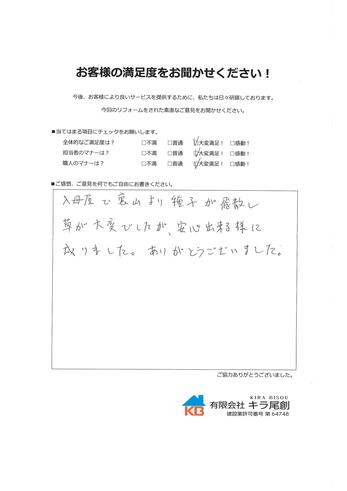 お客様の満足度をお聞かせください！
今後、お客様により良いサービスを提供するために、私たちは日々研鑽しております。
今回のリフォームをされた素直なご意見をお聞かせください。
■当てはまる項目にチェックをお願いします。
全体的なご満足度は？ □不満 □普通 ☑大変満足！ □感動！
担当者のマナーは？ □不満 □普通 ☑大変満足！ □感動！
職人のマナーは？ □不満 □普通 ☑大変満足！ □感動！
■ご感想、ご意見を何でもご自由にお書きください。
入母屋で裏山より種子が飛散し
草が大変でしたが、安心出来る様に
成りました。ありがとうございました。
ご協力ありがとうございました。
KIRA BISOU
KB 有限会社 キラ尾創
建設業許可番号 第64748